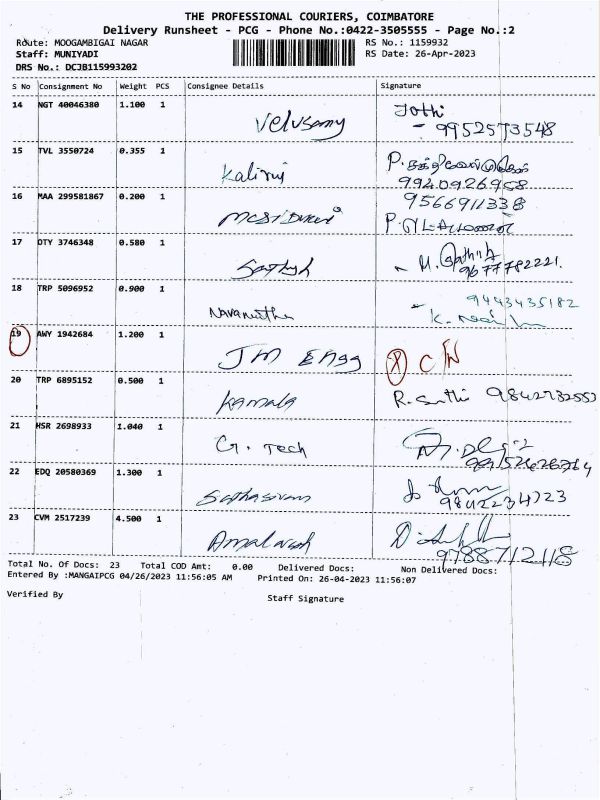 THE PROFESSIONAL COURIERS, COIMBATORE
Delivery Runsheet - PCG - Phone No.:0422-3505555 - Page No.:2
Route: MOOGAMBIGAI NAGAR RS No.: 1159932
Staff: MUNIYADI RS Date: 26-Apr-2023
DRS No.: DCJB115993202
S No Consignment No Weight PCS Consignee Details Signature
14 NGT 40046380 1.100 1 Velusamy Jothi
- 9952573548
15 TVL 3550724 0.355 1 Kaliraj P.
9940926958
16 MAA 299581867 0.200 1 9566911338
P.
17 OTY 3746348 0.580 1 Sathish M.
9677782221.
18 TRP 5096952 0.900 1 Navaneetha 9443435182
K.
19 AWY 1942684 1.200 1 JM Engg X C/N
20 TRP 6895152 0.500 1 Kamala R. Sathi 9842732553
21 HSR 2698933 1.040 1 G. Tech
22 EDQ 20580369 1.300 1 Sathasivam
9842234723
23 CVM 2517239 4.500 1 Amalraj
9788712118
Total No. Of Docs: 23 Total COD Amt: 0.00 Delivered Docs: Non Delivered Docs:
Entered By :MANGAIPCG 04/26/2023 11:56:05 AM Printed On: 26-04-2023 11:56:07
Verified By Staff Signature